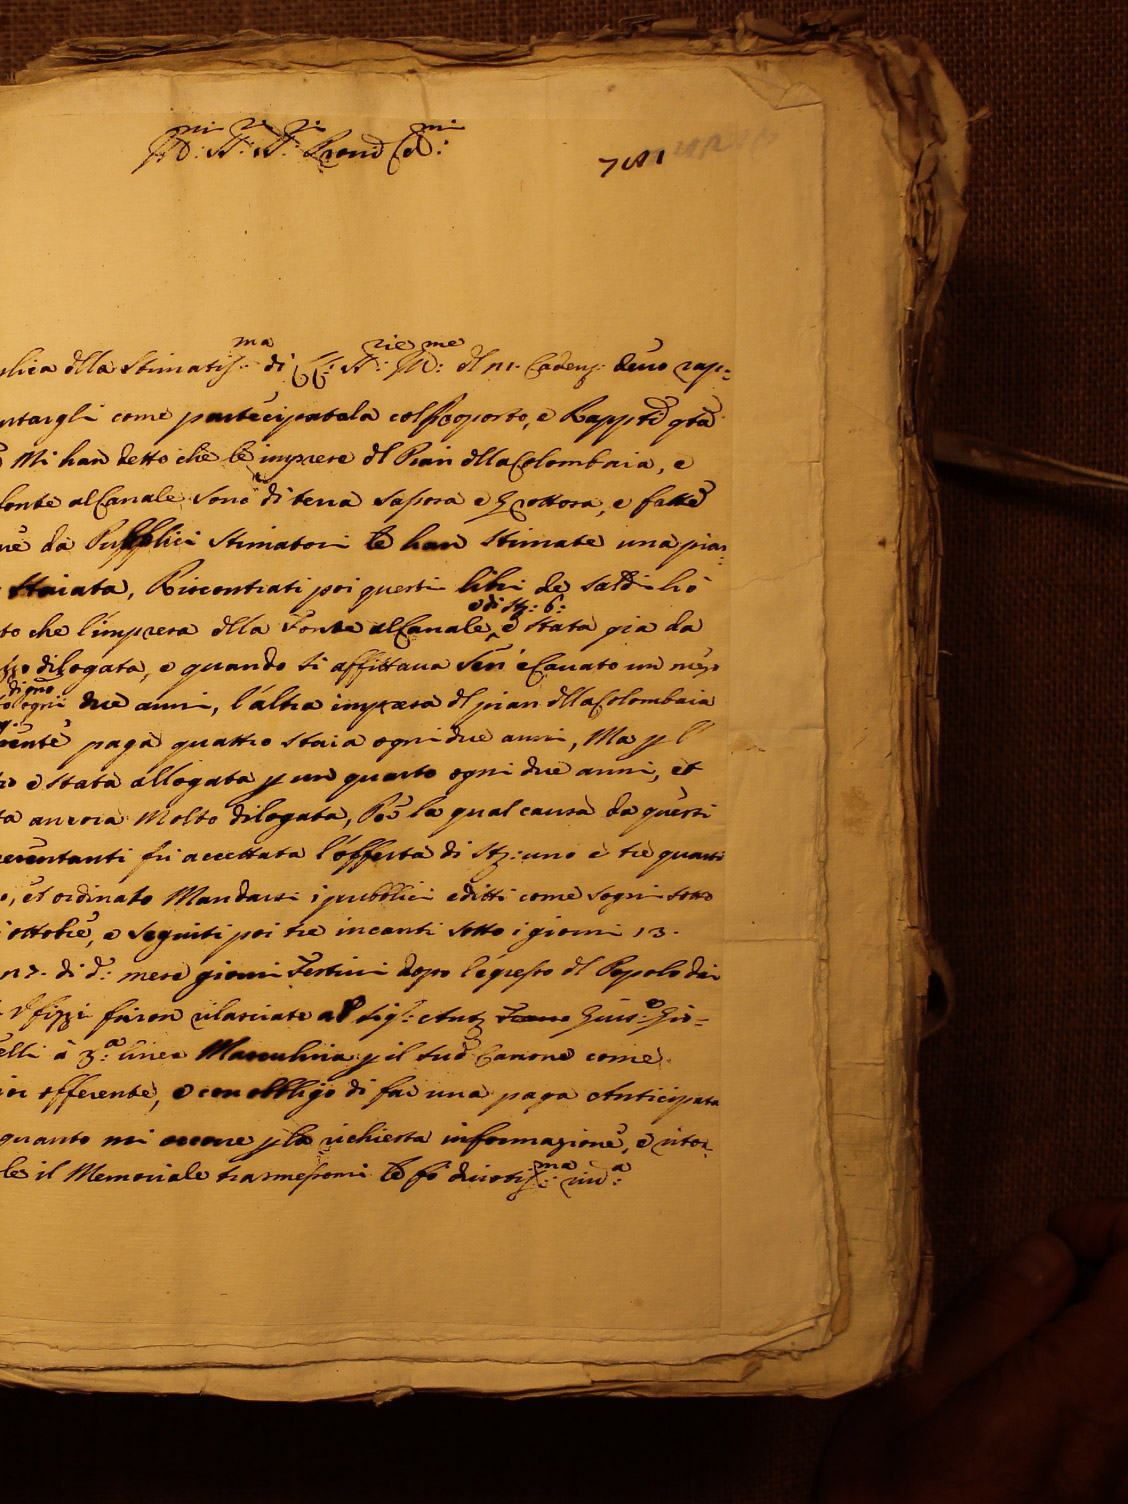 Ill:mi SS:ri SS:ri Pron Col:mi
781
plica dlla Stimatis:ma di VV: SS:rie Ill:me dl m. Cadens: devo rap=
entargli come partecipatala col Rapporto, e Rappti qta
Mi han detto che le imprese dl Pian dlla Colombaia, e
fonte al Canale sono di terra sassosa e Grottosa, e fatte
da Pubblici Stimatori le han stimate una pias=
Staiata, Riscontrati poi questi libri de saldi hò
to che l'impresa dlla Fonte al Canale, e di Sta: 6: è stata gia da
zzo dilogata, e quando si affittava sen' è Cavato un mezo
di gno ogni due anni, l'altra impresa dl pian dlla Colombaia
mente paga quattro staia ogni due anni, Ma p l'
ro è stata allogata p un quarto ogni due anni, et
ta ancora Molto dilogata, Per la qual causa da questi
resentanti fù accettata l'offerta di Sta: uno e trè quarti
o, et ordinato Mandarsi i pubblici editti come segui sotto
ottobre, e seguiti poi tre incanti sotto i giorni 13.
n 7. di d.: mese giorni Festivi dopo l'egresso dl Popolo dai
Uffizzi furon rilasciate al Sig:r Ant: Giuse: Gio=
elli à 3:a linea Masculina p il sud Canone come
ior offerente, e con obbligo di far una paga Anticipata
quanto mi occorre p la richiesta informazione, e ritor=
le il Memoriale trasmessomi le fò divotis:ma riv:a